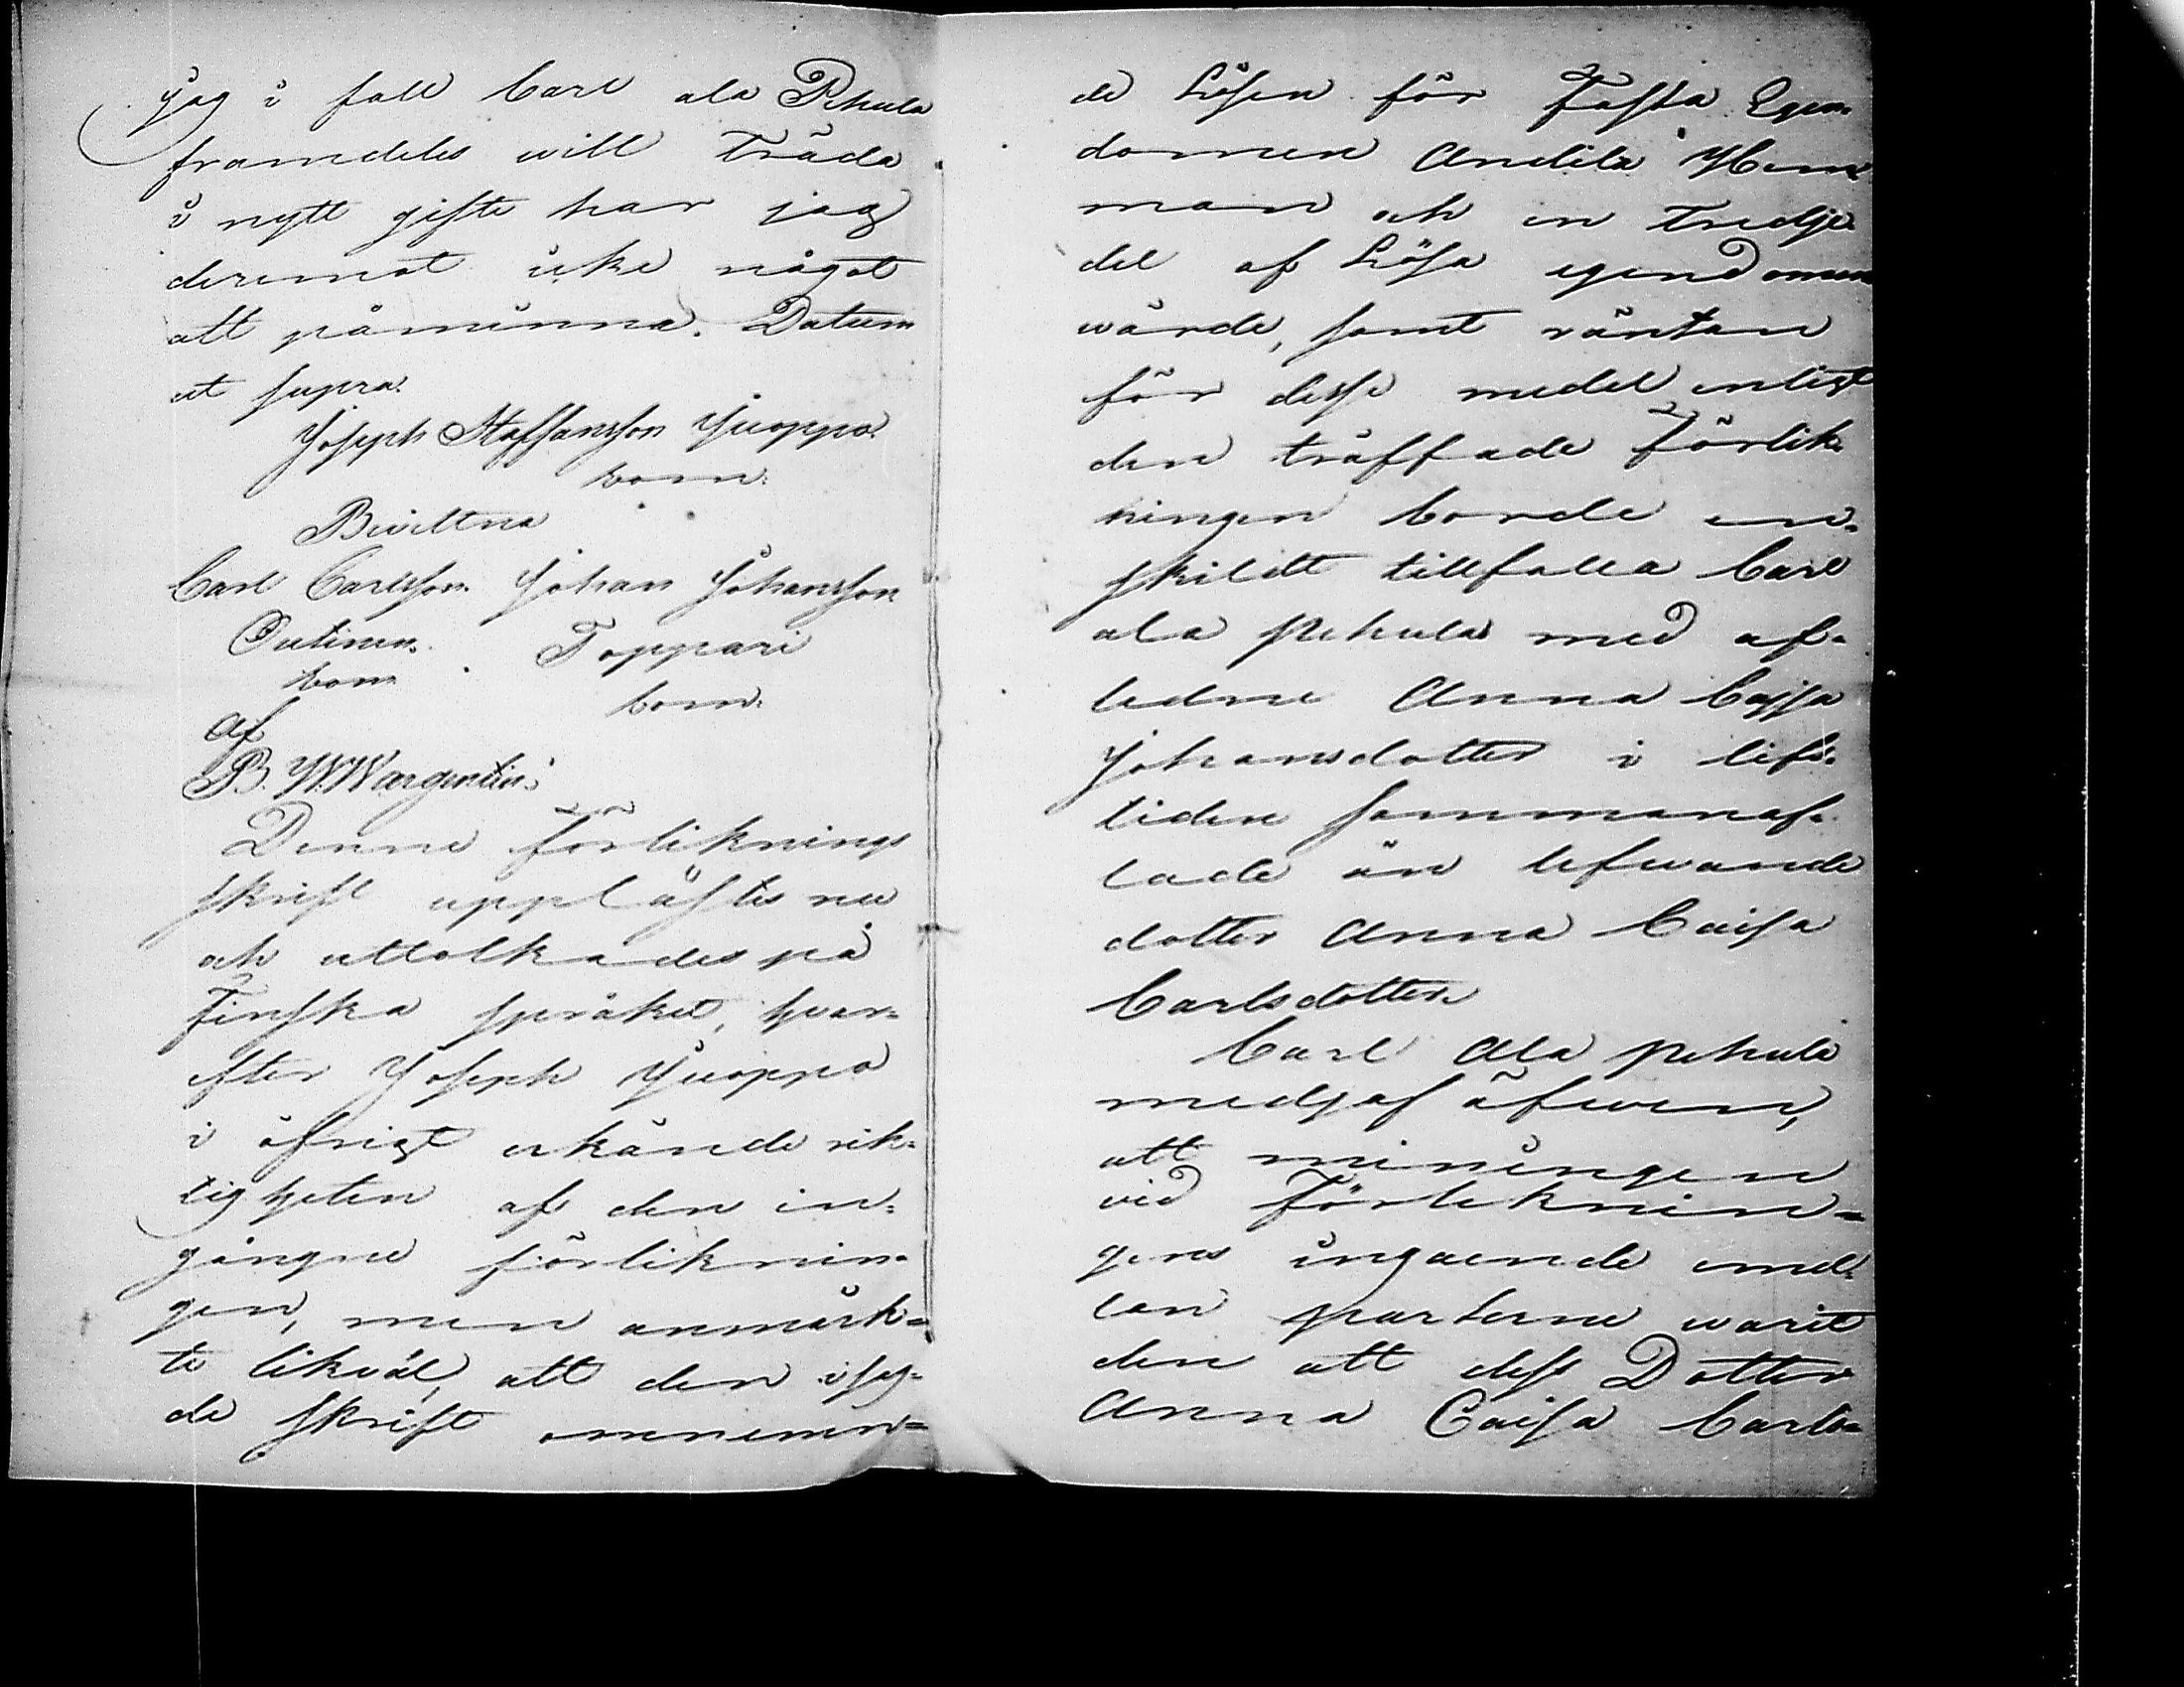 jag i fall Carl ala Pekula
framdeles will Träda
i nytt gifte har jag
deremot icke något
att påminna. Datum
ut supra.
Joseph Staffansson Juoppa.
bom.
Bevittna
Carl Carlsson. Johan Johansson
Outinen. Toppari
bom bom.
Af
B. W. Wargentin.
Denne förliknings
skrift upplästes nu
och uttolkades på
Finska språket, hvar-
efter Joseph Juoppa
i öfrigt erkände rik-
tigheten af den in-
gångne förliknin-
gen, men anmärk-
te likväl, att den i sag-
de skrift omnemn-
de Lösen för Fasta Egen-
domen Andila Hem-
man och en tredje-
del af Lösa egendomens
wärde, samt räntan
för desse medel enligt
den träffade Förlik-
ningen borde en-
skildt tillfalla Carl
ala Pekulas med af-
ledne Anna Cajsa
Johansdotter i lifs-
tiden sammanaf-
lade än lefwande
dotter Anna Caisa
Carlsdotter.
Carl Ala pekula
medgaf äfwen,
att meningen
vid Förliknin-
gens ingaende emel-
lan parterne warit
den att dess Dotter
Anna Caisa Carls-